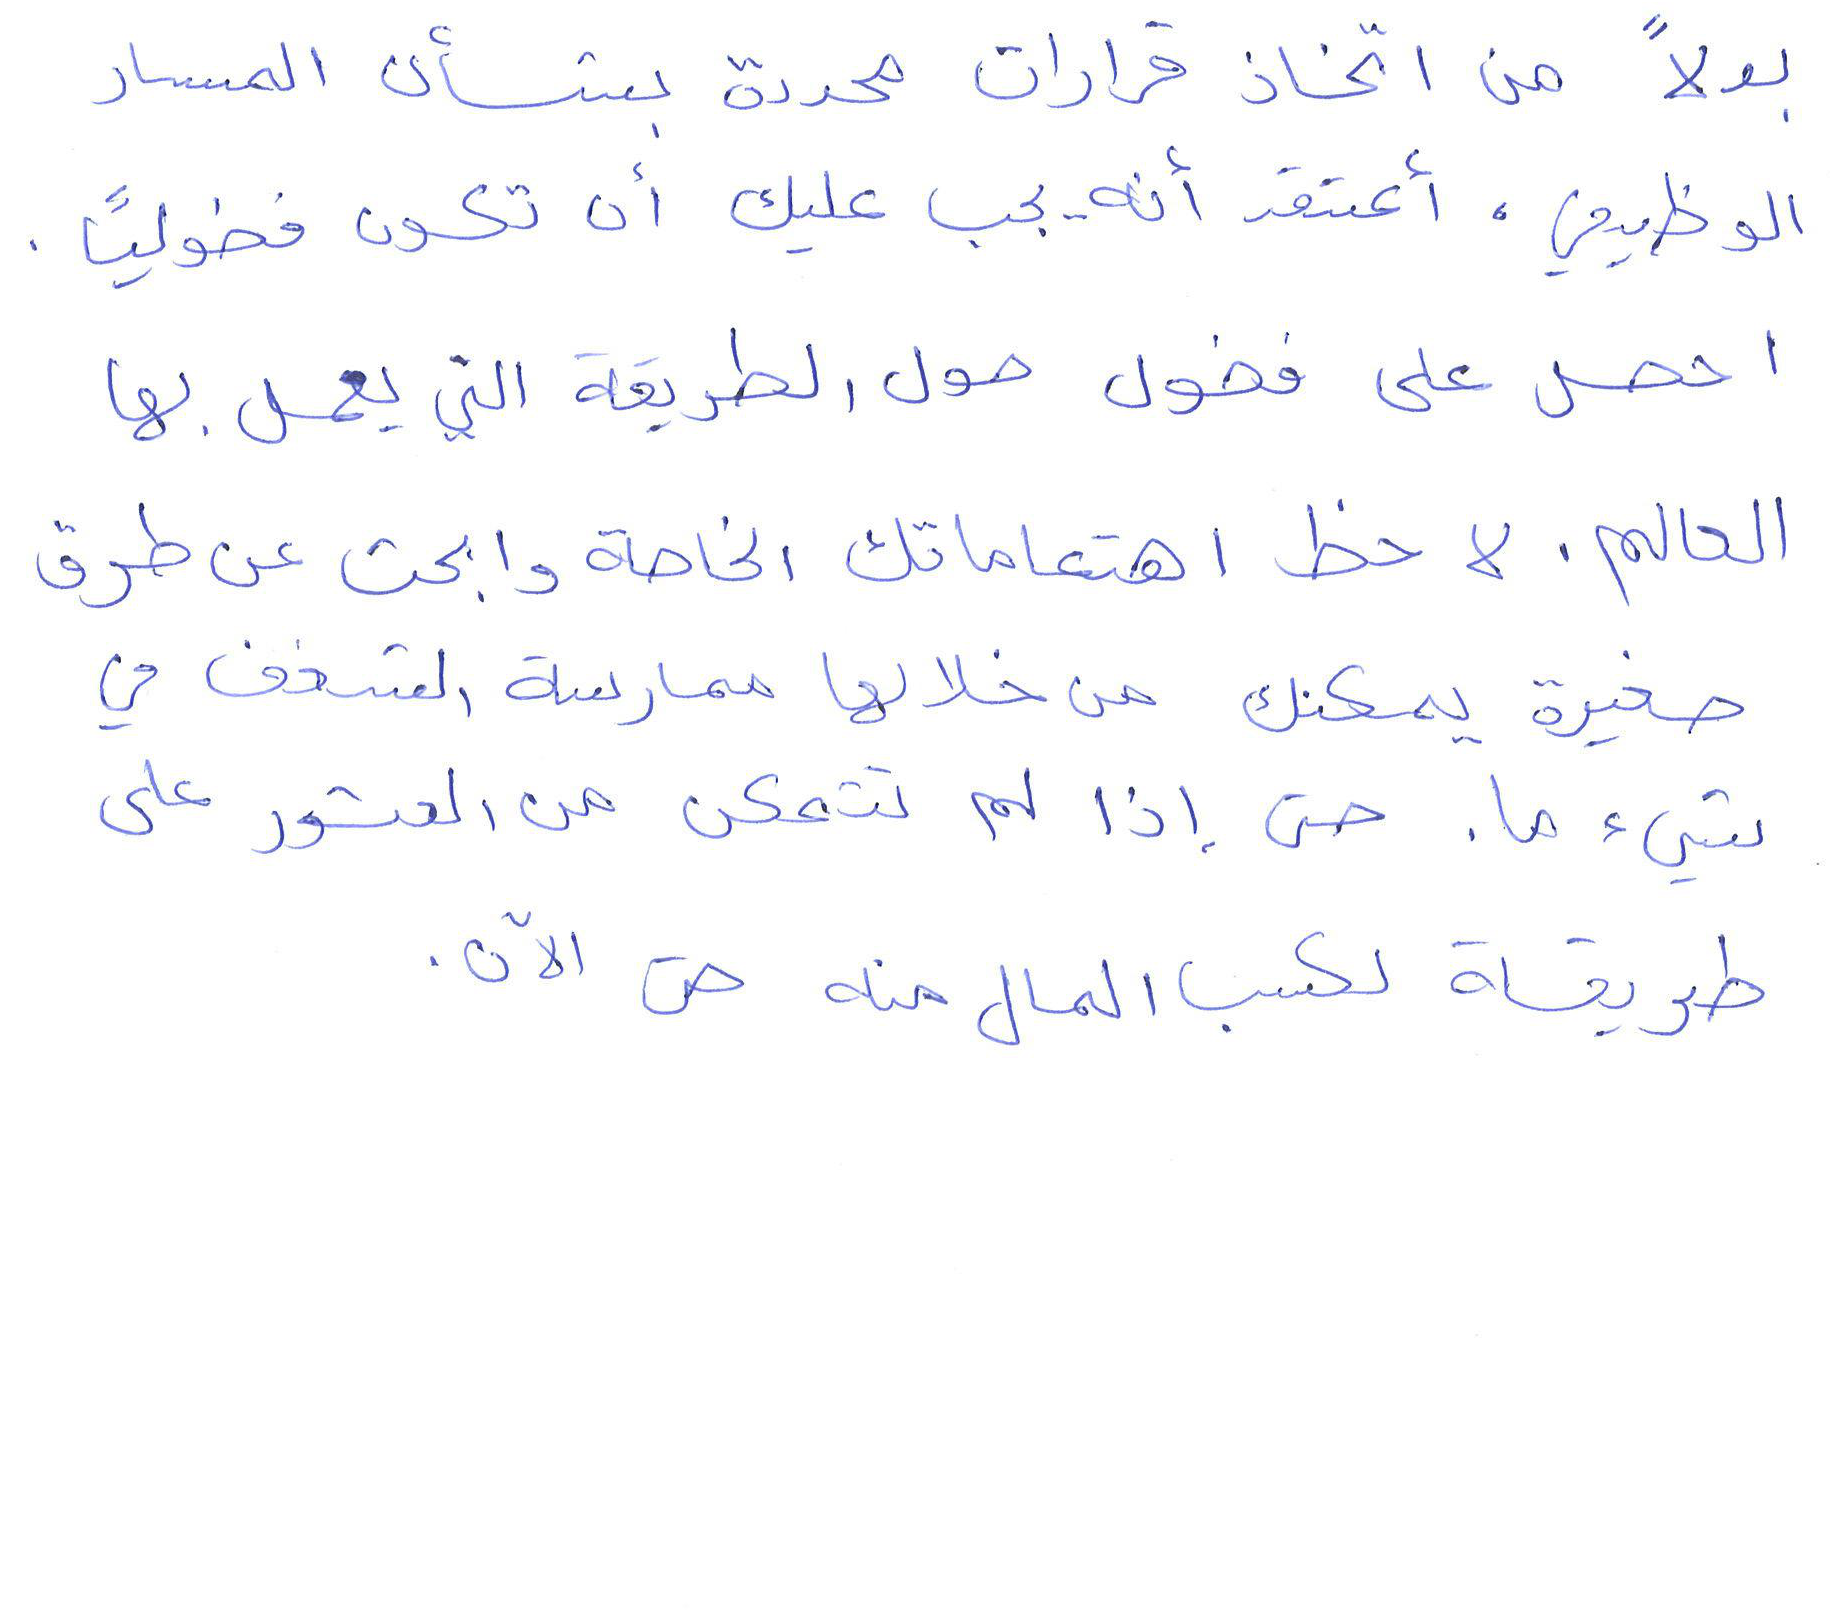 بدلاً من اتّخاذ قرارات محددة بشأن المسار
الوظيفي، أعتقد أنه يجب عليك أن تكون فضوليًا.
احصل على فضول حول الطريقة التي يعمل بها
العالم. لاحظ اهتماماتك الخاصة وابحث عن طرق
صغيرة يمكنك من خلالها ممارسة الشغف في
شيء ما. حتى إذا لم تتمكن من العثور على
طريقة لكسب المال منه حتى الآن.